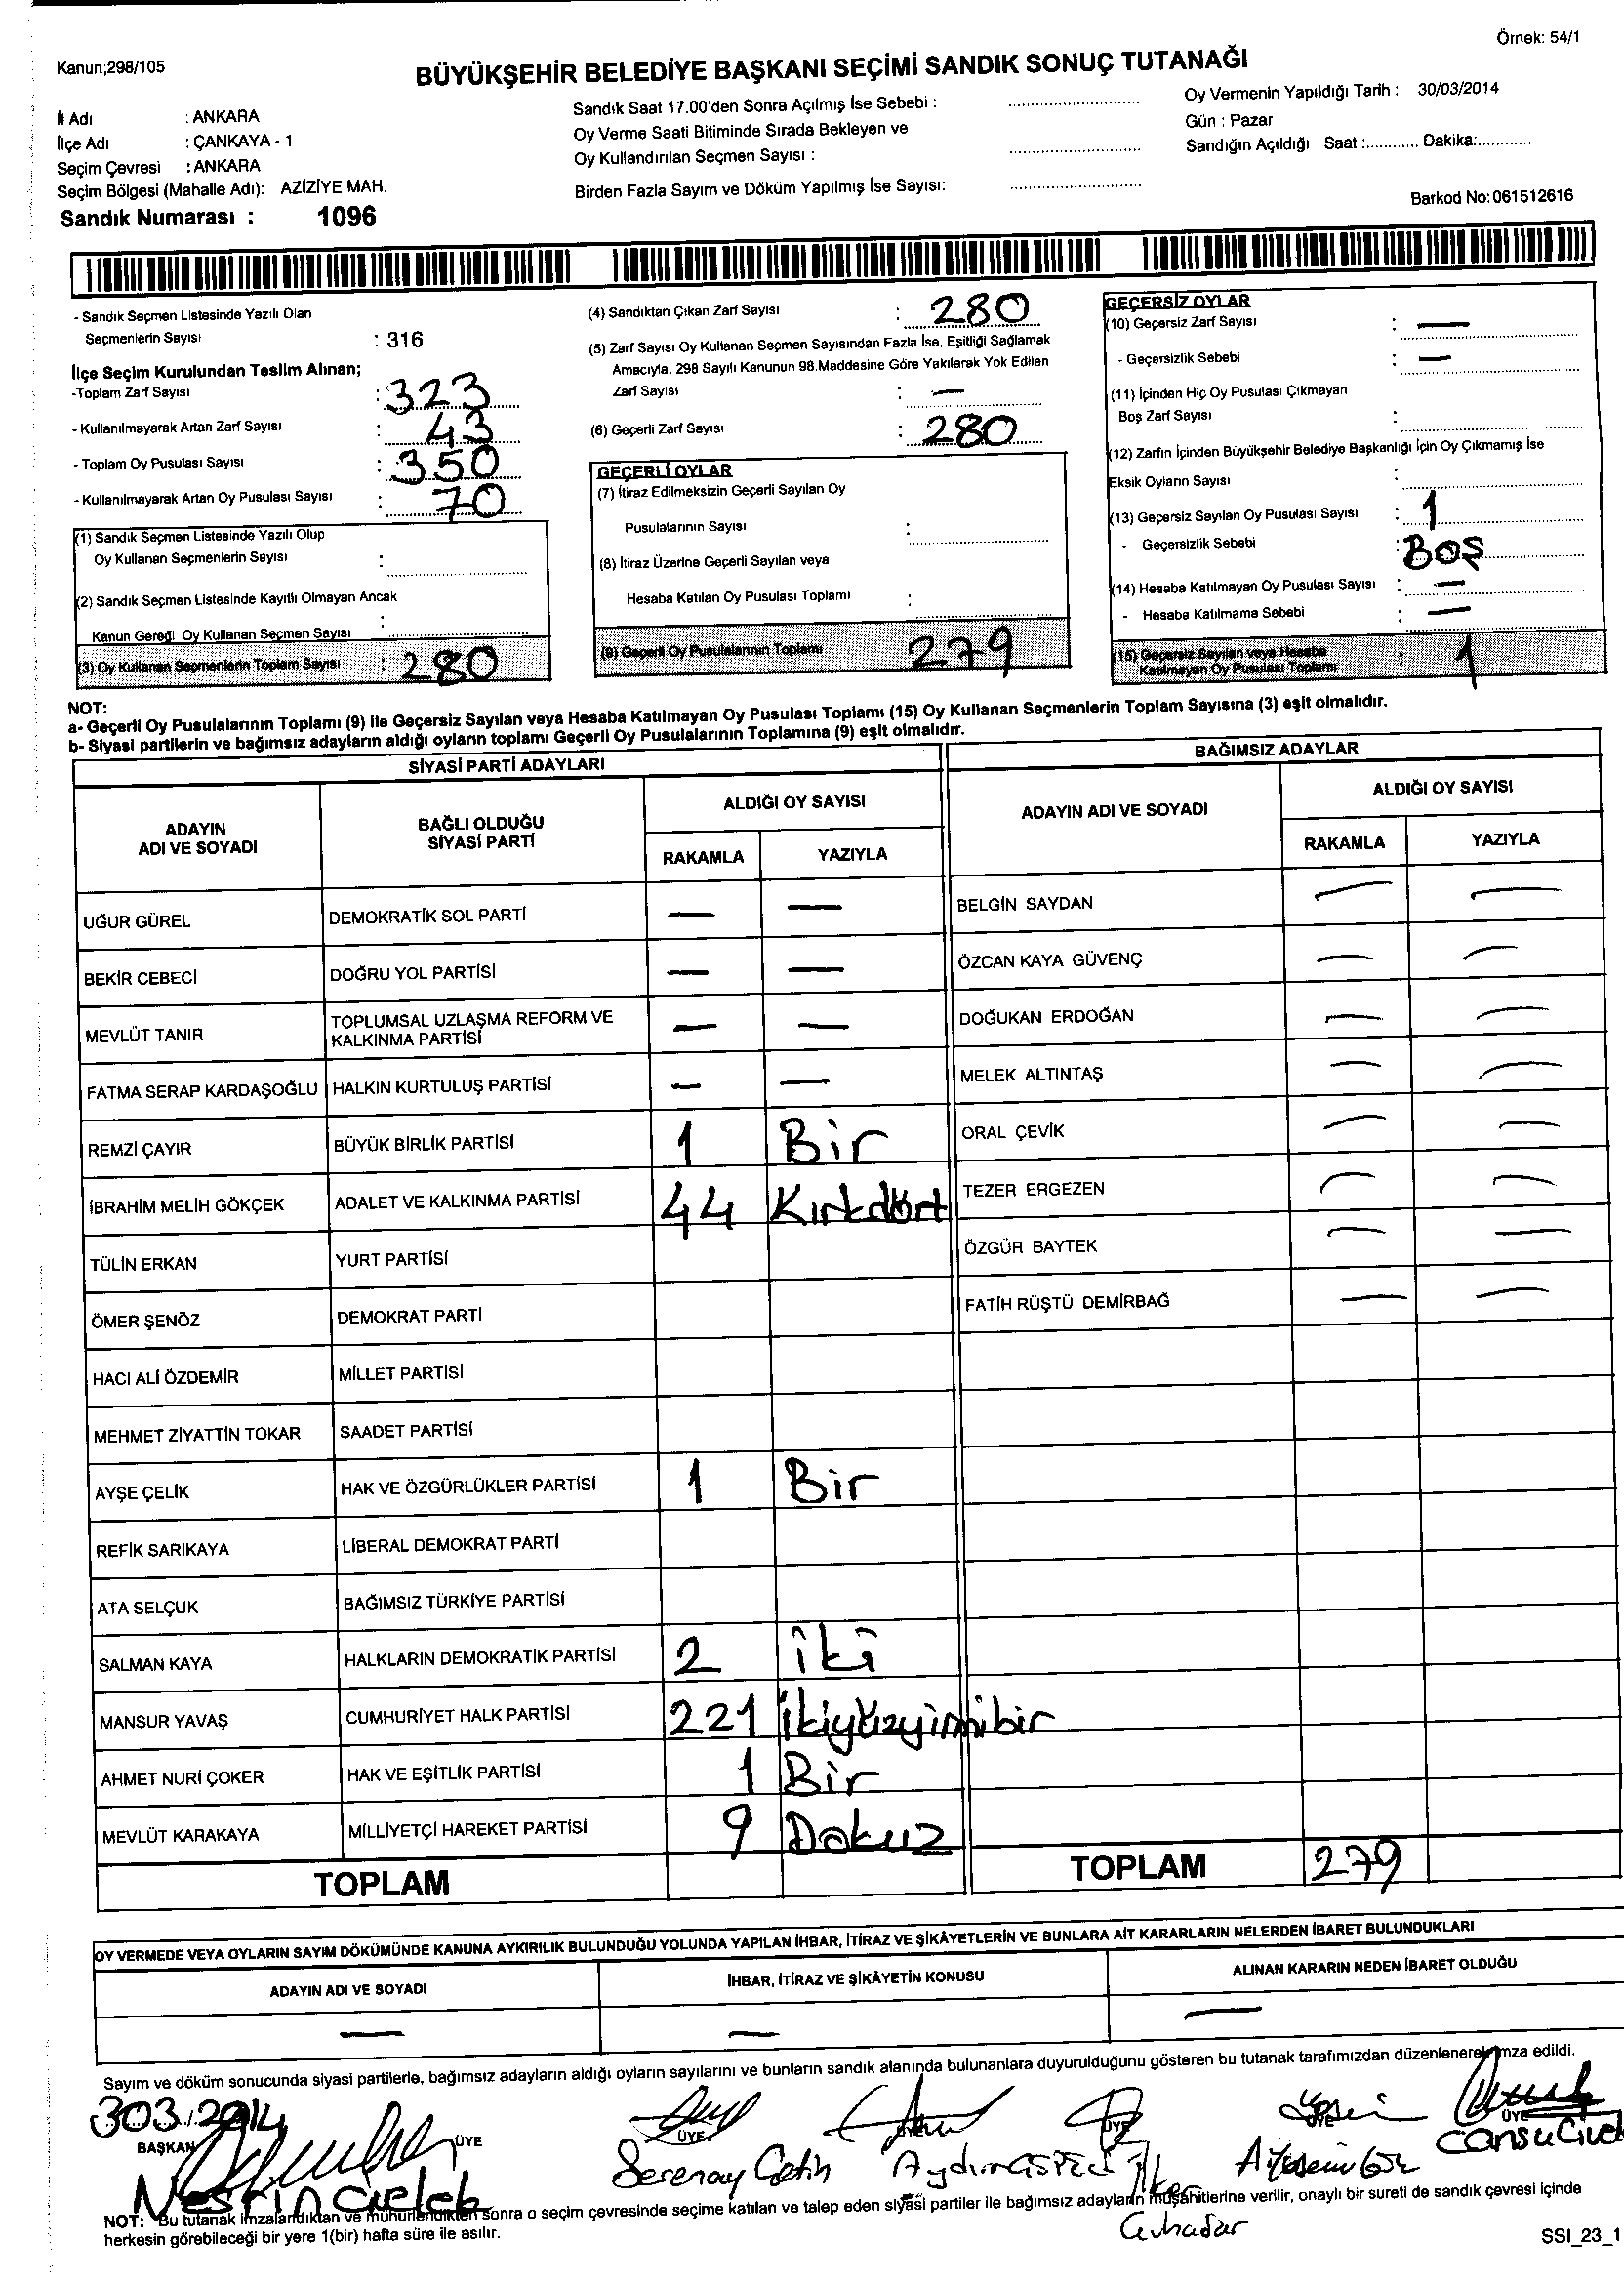 Örnek: 54/1
Kanun;298/105
BÜYÜKŞEHİR BELEDİYE BAŞKANI SEÇİMİ SANDIK SONUÇ TUTANAĞI
İl Adı : ANKARA
İlçe Adı : ÇANKAYA - 1
Seçim Çevresi : ANKARA
Seçim Bölgesi (Mahalle Adı): AZİZİYE MAH.
Sandık Numarası : 1096
Sandık Saat 17.00'den Sonra Açılmış İse Sebebi :
Oy Verme Saati Bitiminde Sırada Bekleyen ve
Oy Kullandırılan Seçmen Sayısı :
Birden Fazla Sayım ve Döküm Yapılmış İse Sayısı:
Oy Vermenin Yapıldığı Tarih : 30/03/2014
Gün : Pazar
Sandığın Açıldığı Saat :............ Dakika:............
Barkod No:061512616
- Sandık Seçmen Listesinde Yazılı Olan
Seçmenlerin Sayısı : 316
İlçe Seçim Kurulundan Teslim Alınan;
-Toplam Zarf Sayısı : 323
- Kullanılmayarak Artan Zarf Sayısı : 43
- Toplam Oy Pusulası Sayısı : 350
- Kullanılmayarak Artan Oy Pusulası Sayısı : 70
(1) Sandık Seçmen Listesinde Yazılı Olup
Oy Kullanan Seçmenlerin Sayısı :
(2) Sandık Seçmen Listesinde Kayıtlı Olmayan Ancak
Kanun Gereği Oy Kullanan Seçmen Sayısı :
(3) Oy Kullanan Seçmenlerin Toplam Sayısı : 280
(4) Sandıktan Çıkan Zarf Sayısı : 280
(5) Zarf Sayısı Oy Kullanan Seçmen Sayısından Fazla İse, Eşitliği Sağlamak
Amacıyla; 298 Sayılı Kanunun 98.Maddesine Göre Yakılarak Yok Edilen
Zarf Sayısı : —
(6) Geçerli Zarf Sayısı : 280
GEÇERLİ OYLAR
(7) İtiraz Edilmeksizin Geçerli Sayılan Oy
Pusulalarının Sayısı :
(8) İtiraz Üzerine Geçerli Sayılan veya
Hesaba Katılan Oy Pusulası Toplamı :
(9) Geçerli Oy Pusulalarının Toplamı 279
GEÇERSİZ OYLAR
(10) Geçersiz Zarf Sayısı : —
- Geçersizlik Sebebi : —
(11) İçinden Hiç Oy Pusulası Çıkmayan
Boş Zarf Sayısı :
(12) Zarfın İçinden Büyükşehir Belediye Başkanlığı İçin Oy Çıkmamış İse
Eksik Oyların Sayısı :
(13) Geçersiz Sayılan Oy Pusulası Sayısı : 1
- Geçersizlik Sebebi : BOŞ
(14) Hesaba Katılmayan Oy Pusulası Sayısı : —
- Hesaba Katılmama Sebebi : —
(15) Geçersiz Sayılan veya Hesaba
Katılmayan Oy Pusulası Toplamı : 1
NOT:
a- Geçerli Oy Pusulalarının Toplamı (9) ile Geçersiz Sayılan veya Hesaba Katılmayan Oy Pusulası Toplamı (15) Oy Kullanan Seçmenlerin Toplam Sayısına (3) eşit olmalıdır.
b- Siyasi partilerin ve bağımsız adayların aldığı oyların toplamı Geçerli Oy Pusulalarının Toplamına (9) eşit olmalıdır.
SİYASİ PARTİ ADAYLARI
ADAYIN
ADI VE SOYADI
BAĞLI OLDUĞU
SİYASİ PARTİ
ALDIĞI OY SAYISI
RAKAMLA YAZIYLA
UĞUR GÜREL DEMOKRATİK SOL PARTİ — —
BEKİR CEBECİ DOĞRU YOL PARTİSİ — —
MEVLÜT TANIR TOPLUMSAL UZLAŞMA REFORM VE
KALKINMA PARTİSİ — —
FATMA SERAP KARDAŞOĞLU HALKIN KURTULUŞ PARTİSİ — —
REMZİ ÇAYIR BÜYÜK BİRLİK PARTİSİ 1 Bir
İBRAHİM MELİH GÖKÇEK ADALET VE KALKINMA PARTİSİ 44 Kırkdört
TÜLİN ERKAN YURT PARTİSİ
ÖMER ŞENÖZ DEMOKRAT PARTİ
HACI ALİ ÖZDEMİR MİLLET PARTİSİ
MEHMET ZİYATTİN TOKAR SAADET PARTİSİ
AYŞE ÇELİK HAK VE ÖZGÜRLÜKLER PARTİSİ 1 Bir
REFİK SARIKAYA LİBERAL DEMOKRAT PARTİ
ATA SELÇUK BAĞIMSIZ TÜRKİYE PARTİSİ
SALMAN KAYA HALKLARIN DEMOKRATİK PARTİSİ 2 iki
MANSUR YAVAŞ CUMHURİYET HALK PARTİSİ 221 ikiyüzyirmibir
AHMET NURİ ÇOKER HAK VE EŞİTLİK PARTİSİ 1 Bir
MEVLÜT KARAKAYA MİLLİYETÇİ HAREKET PARTİSİ 9 Dokuz
TOPLAM
BAĞIMSIZ ADAYLAR
ADAYIN ADI VE SOYADI
ALDIĞI OY SAYISI
RAKAMLA YAZIYLA
BELGİN SAYDAN — —
ÖZCAN KAYA GÜVENÇ — —
DOĞUKAN ERDOĞAN — —
MELEK ALTINTAŞ — —
ORAL ÇEVİK — —
TEZER ERGEZEN — —
ÖZGÜR BAYTEK — —
FATİH RÜŞTÜ DEMİRBAĞ — —
TOPLAM 279
OY VERMEDE VEYA OYLARIN SAYIM DÖKÜMÜNDE KANUNA AYKIRILIK BULUNDUĞU YOLUNDA YAPILAN İHBAR, İTİRAZ VE ŞİKÂYETLERİN VE BUNLARA AİT KARARLARIN NELERDEN İBARET BULUNDUKLARI
ADAYIN ADI VE SOYADI İHBAR, İTİRAZ VE ŞİKÂYETİN KONUSU ALINAN KARARIN NEDEN İBARET OLDUĞU
— — —
Sayım ve döküm sonucunda siyasi partilerle, bağımsız adayların aldığı oyların sayılarını ve bunların sandık alanında bulunanlara duyurulduğunu gösteren bu tutanak tarafımızdan düzenlenerek imza edildi.
303.2014
BAŞKAN ÜYE ÜYE ÜYE ÜYE ÜYE
Serenay Çetin
NOT: Bu tutanak imzalandıktan ve mühürlendikten sonra o seçim çevresinde seçime katılan ve talep eden siyasi partiler ile bağımsız adayların müşahitlerine verilir, onaylı bir sureti de sandık çevresi içinde
herkesin görebileceği bir yere 1(bir) hafta süre ile asılır.
SSI_23_1